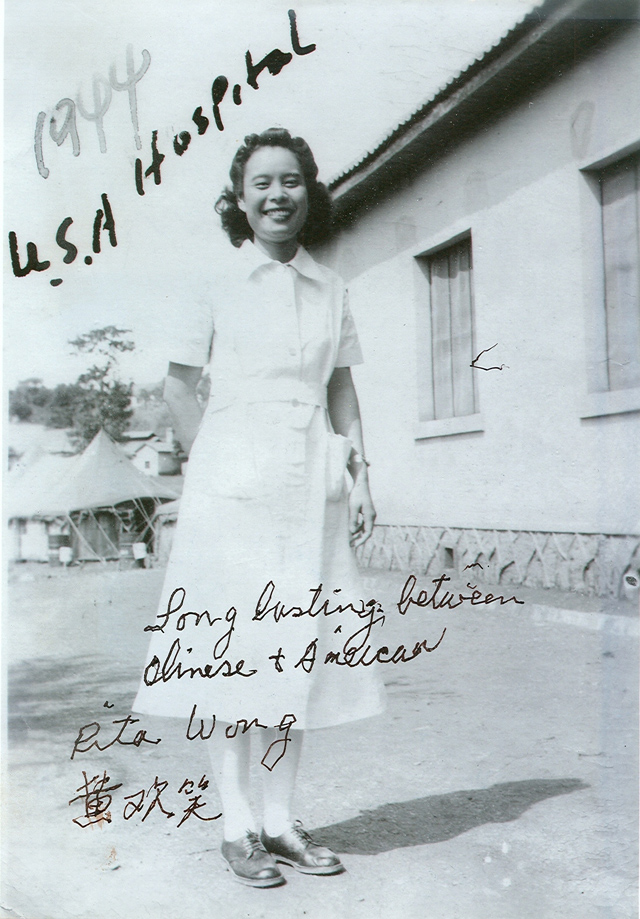 1944
U.S.A Hospital
Long lasting, between
Chinese & American
Rita Wong
黄欢笑